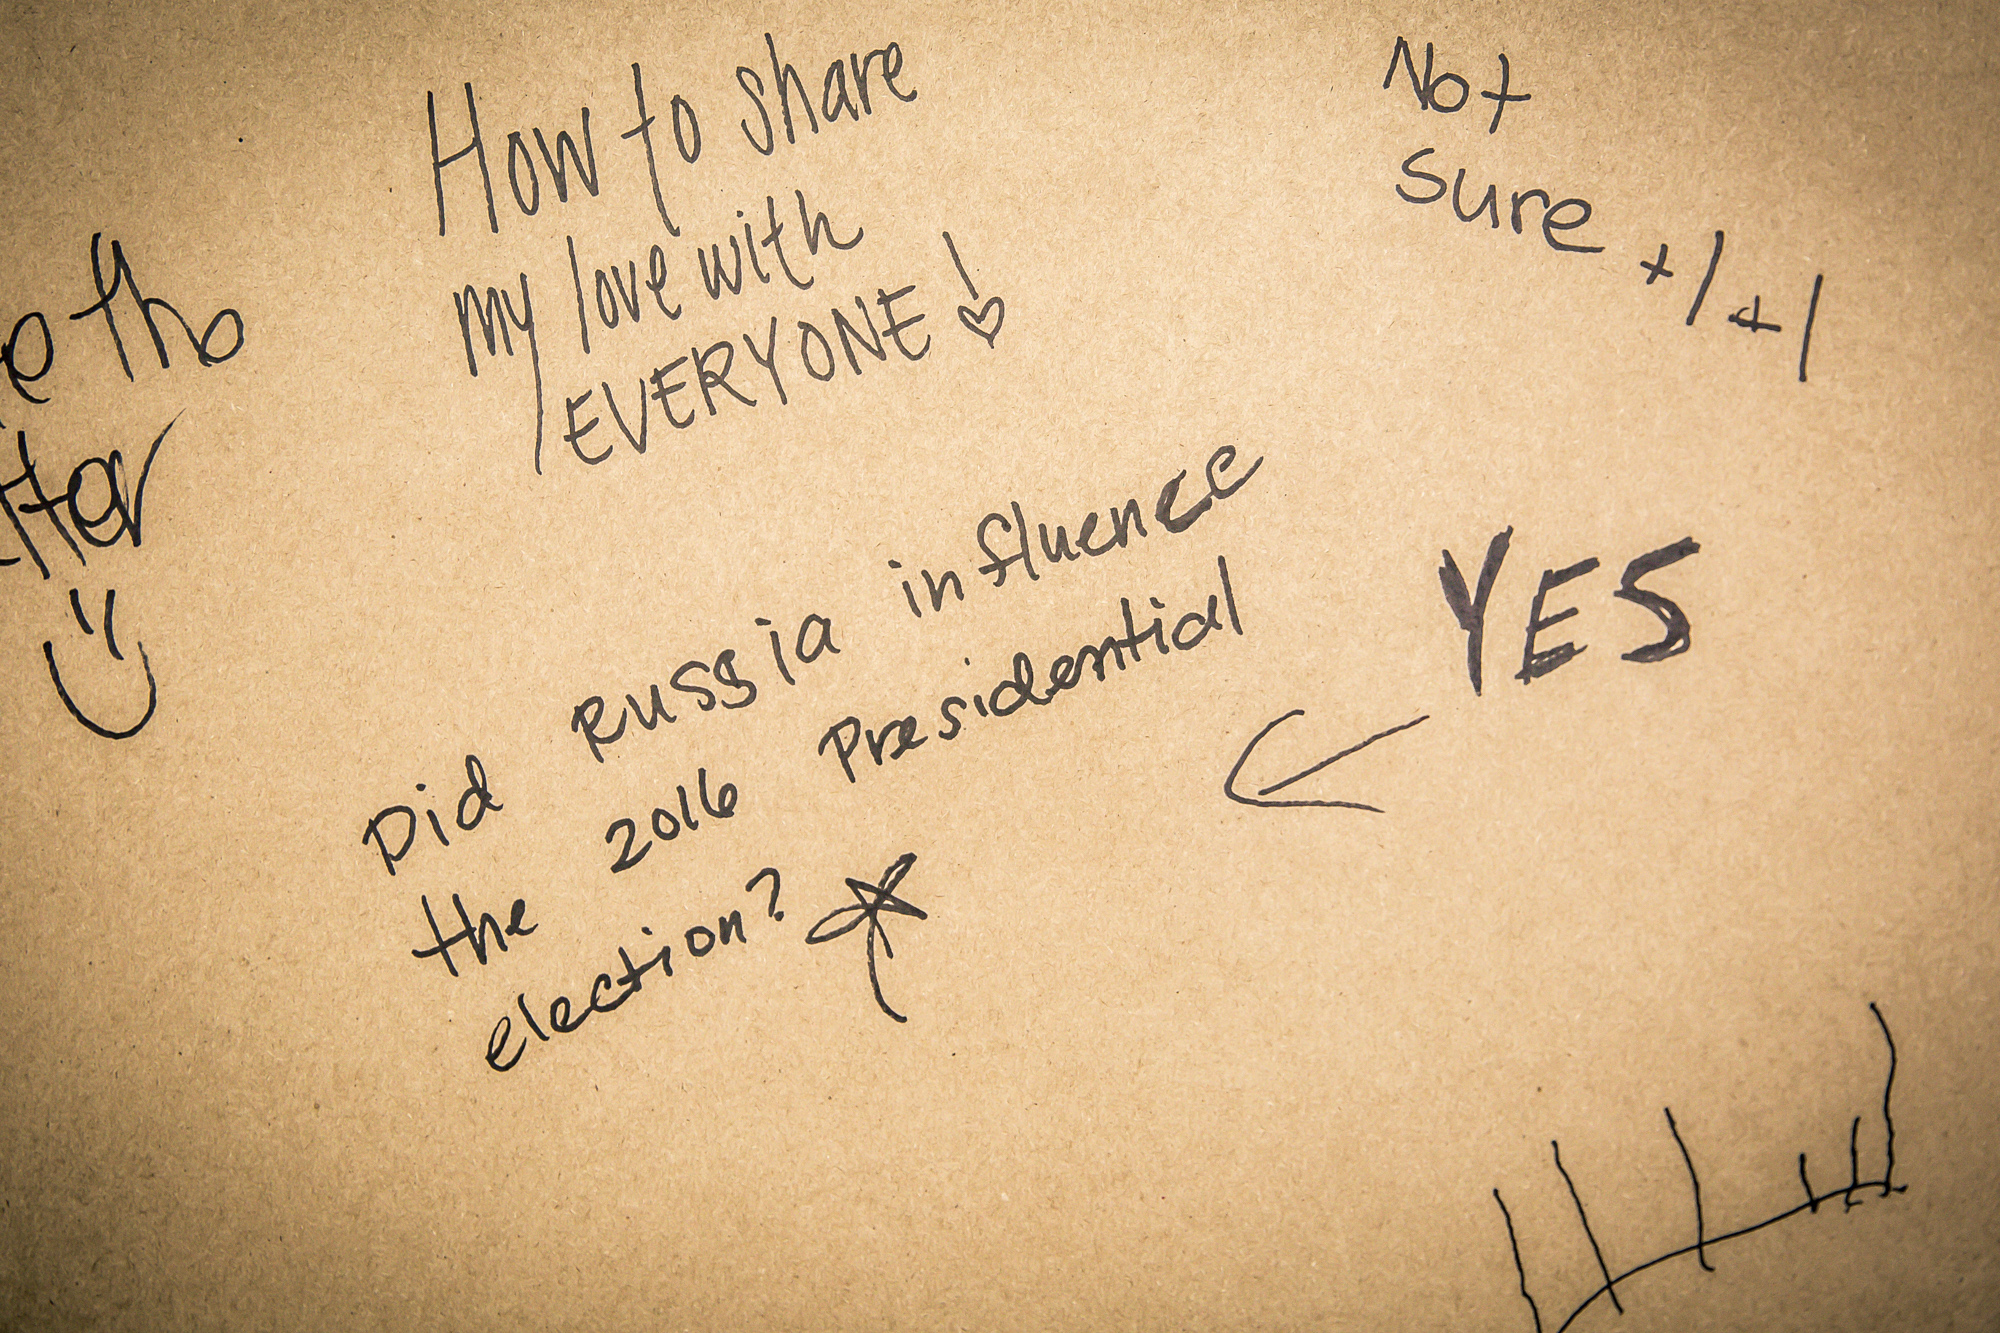 How to share
my love with
EVERYONE!
Not
sure +1 +1
tho
Did Russia influence
the 2016 Presidential
election?
YES